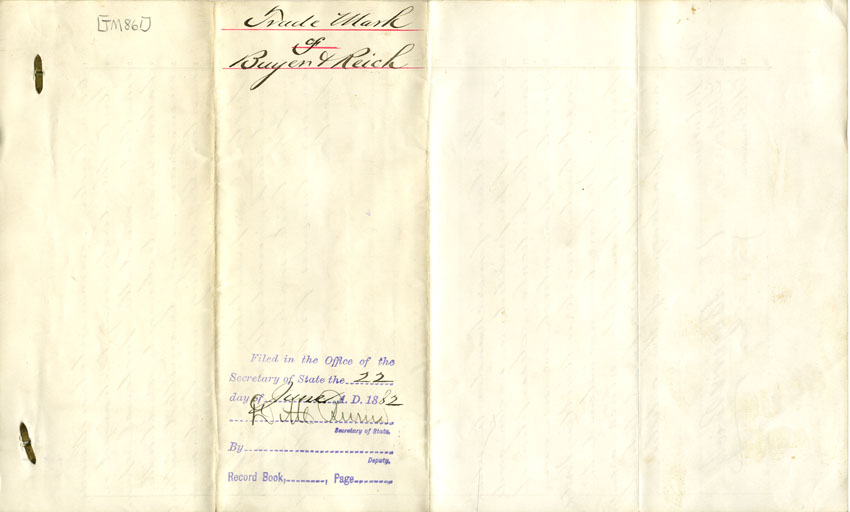 [TM861]
Trade Mark
of
Buyer & Reich
Filed in the Office of the
Secretary of State the 22
day of June A. D. 1882
Secretary of State.
By
Deputy.
Record Book, , Page